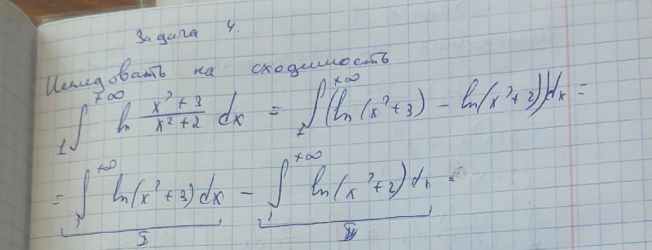 Задача 4.
Исследовать на сходимость
∫₁^{+∞} ln (x²+3)/(x²+2) dx = ∫₁^{+∞} (ln(x²+3) - ln(x²+2))dx =
= ∫₁^{+∞} ln(x²+3)dx - ∫₁^{+∞} ln(x²+2)dx
I II